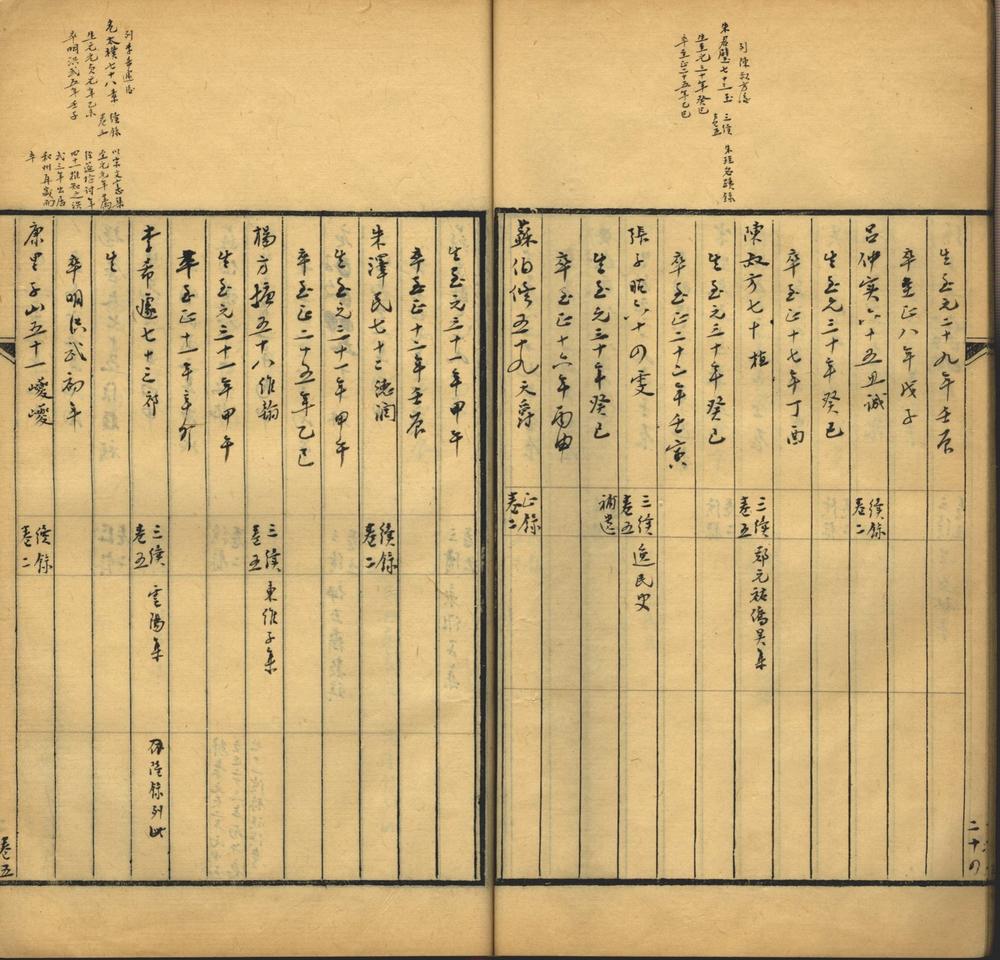 列陳叔方後
朱君璧七十三玉
三續
卷五
朱珪名蹟錄
生至元三十年癸巳
卒至正二十五年乙巳
生至元二十九年壬辰
卒至正八年戊子
呂仲實六十五思誠
續錄
卷二
生至元三十年癸巳
卒至正十七年丁酉
陳叔方七十植
三續
卷五
鄭元祐僑吳集
生至元三十年癸巳
卒至正二十二年壬寅
張子昭六十四雯
三續
卷五
補遺
逸民史
生至元三十年癸巳
卒至正十六年丙申
蘇伯修五十九天爵
正錄
卷二
二十四
列李希蘧後
危太樸七十八素
續錄
卷二
生元元貞元年乙未
卒明洪武五年壬子
以宋文憲集
至元元年
四十一推知之洪
武三年出居
和州再歲而
卒
生至元三十一年甲午
卒至正十二年壬辰
朱澤民七十二德潤
續錄
卷二
生至元三十一年甲午
卒至正二十五年乙巳
楊方塘五十八作翰
三續
卷五
東作子集
生至元三十一年甲午
卒至正十一年辛卯
李希蘧七十三祁
三續
卷五
雲陽集
依陸錄列此
生
卒明洪武初年
康里子山五十一巙巙
續錄
卷二
卷五